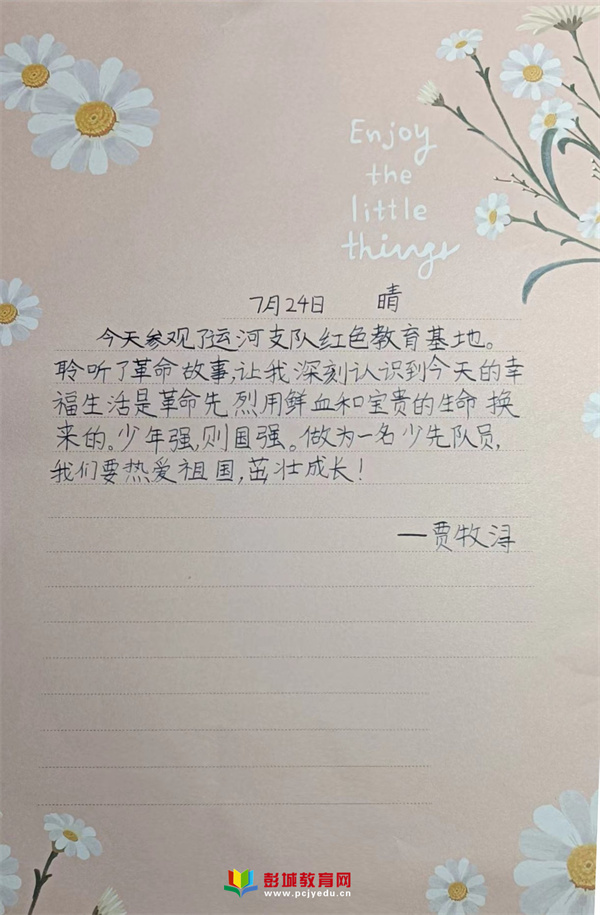 Enjoy
the
little
things
7月24日 晴
今天参观了运河支队红色教育基地。
聆听了革命故事,让我深刻认识到今天的幸
福生活是革命先烈用鲜血和宝贵的生命换
来的。少年强,则国强。做为一名少先队员,
我们要热爱祖国,茁壮成长!
—贾牧浔
彭城教育网
www.pcjyedu.cn